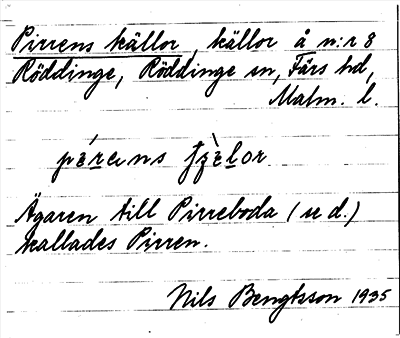 Pirrens källor, källor å n:r 8
Röddinge, Röddinge sn, Färs hd,
Malm. l.
Ägaren till Pirreboda (se d.)
kallades Pirren.
Nils Bengtsson 1935